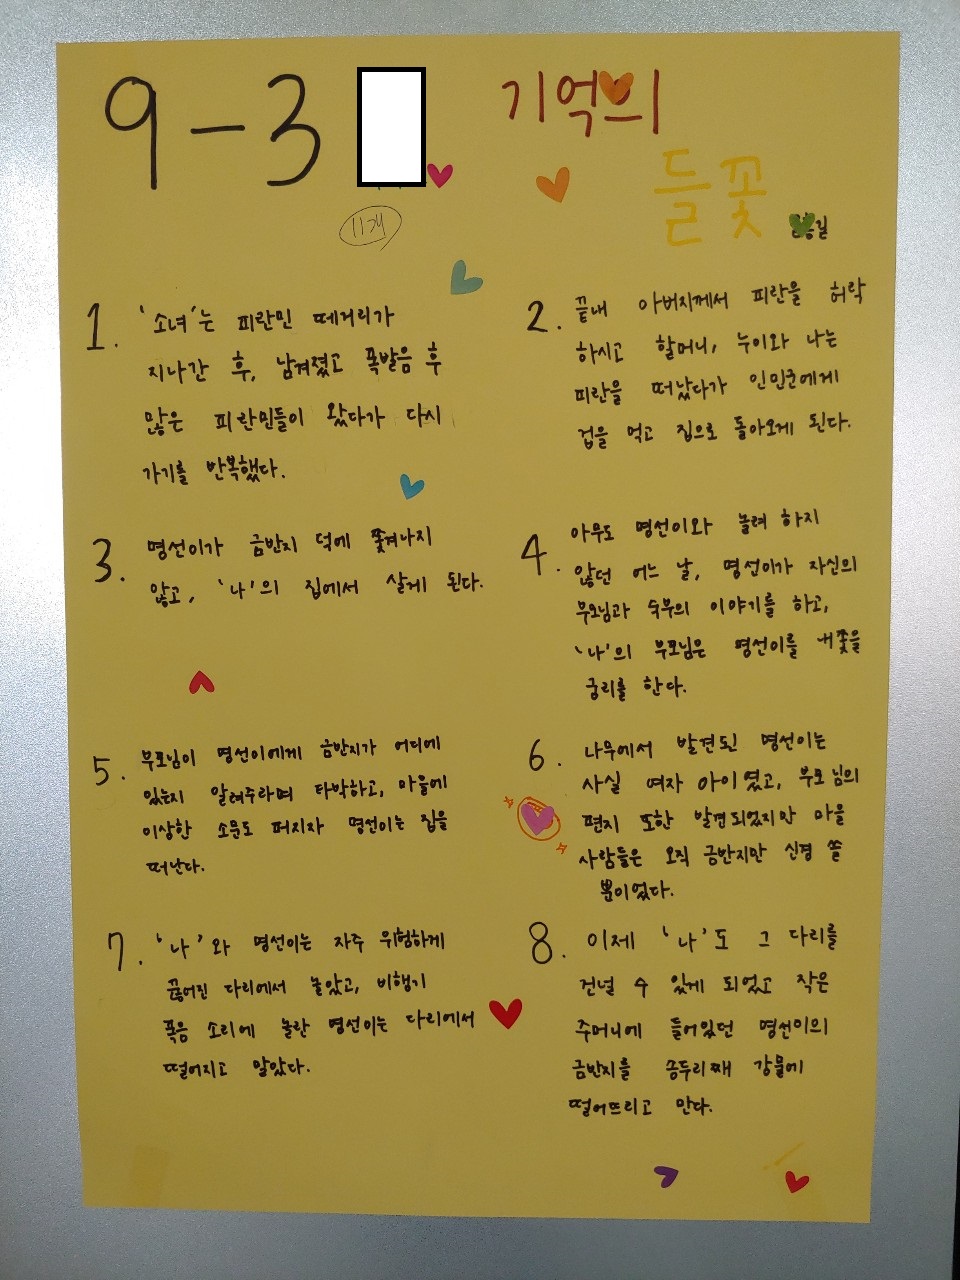 9-3
기억의
들꽃
11개
1. '소녀'는 피란민 떼거리가
지나간 후, 남겨졌고 폭발음 후
많은 피란민들이 왔다가 다시
가기를 반복했다.
2. 끝내 아버지께서 피란을 허락
하시고 할머니, 누이와 나는
피란을 떠났다가 인민군에게
겁을 먹고 집으로 돌아오게 된다.
3. 명선이가 금반지 덕에 쫓겨나지
않고, '나'의 집에서 살게 된다.
4. 아무도 명선이와 놀려 하지
않던 어느 날, 명선이가 자신의
부모님과 숙부의 이야기를 하고,
'나'의 부모님은 명선이를 내쫓을
궁리를 한다.
5. 부모님이 명선이에게 금반지가 어디에
있는지 알려주라며 타박하고, 마을에
이상한 소문도 퍼지자 명선이는 집을
떠난다.
6. 나무에서 발견된 명선이는
사실 여자 아이였고, 부모님의
편지 또한 발견되었지만 마을
사람들은 오직 금반지만 신경 쓸
뿐이었다.
7. '나'와 명선이는 자주 위험하게
끊어진 다리에서 놀았고, 비행기
폭음 소리에 놀란 명선이는 다리에서
떨어지고 말았다.
8. 이제 '나'도 그 다리를
건널 수 있게 되었고 작은
주머니에 들어있던 명선이의
금반지를 송두리째 강물에
떨어뜨리고 만다.